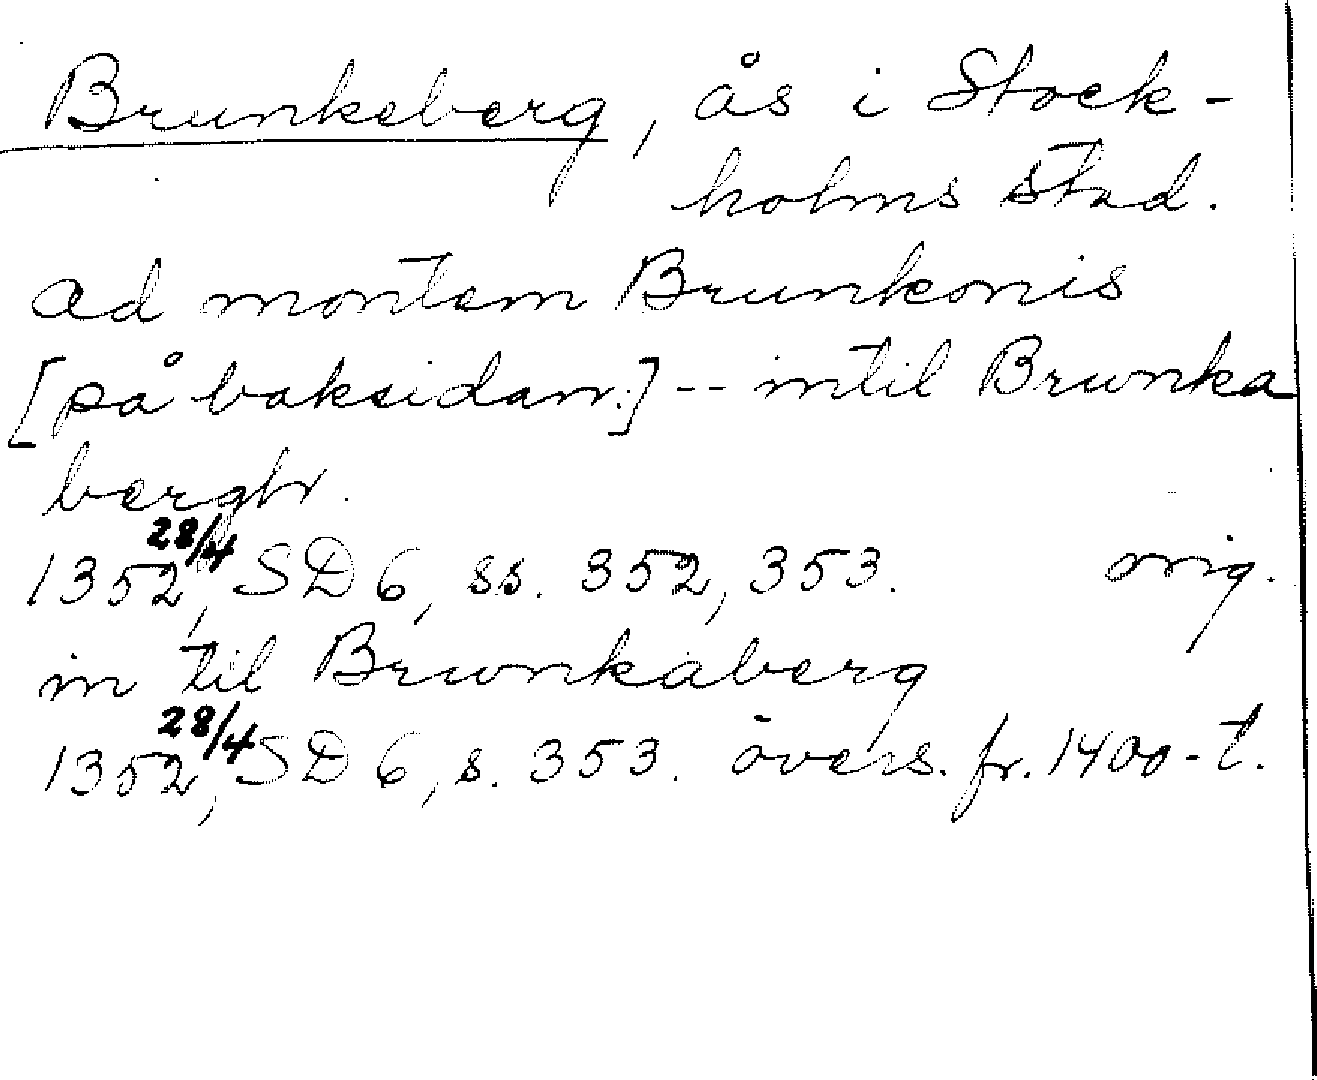 Brunkeberg, ås i Stock-
holms stad.
ad montem Brunkonis
[på baksidan:] -- intil Brunka
berghr.
1352 28/4, SD 6, ss. 352, 353. orig.
in til Brunkaberg
1352 28/4, SD 6, s. 353. övers. fr. 1400-t.